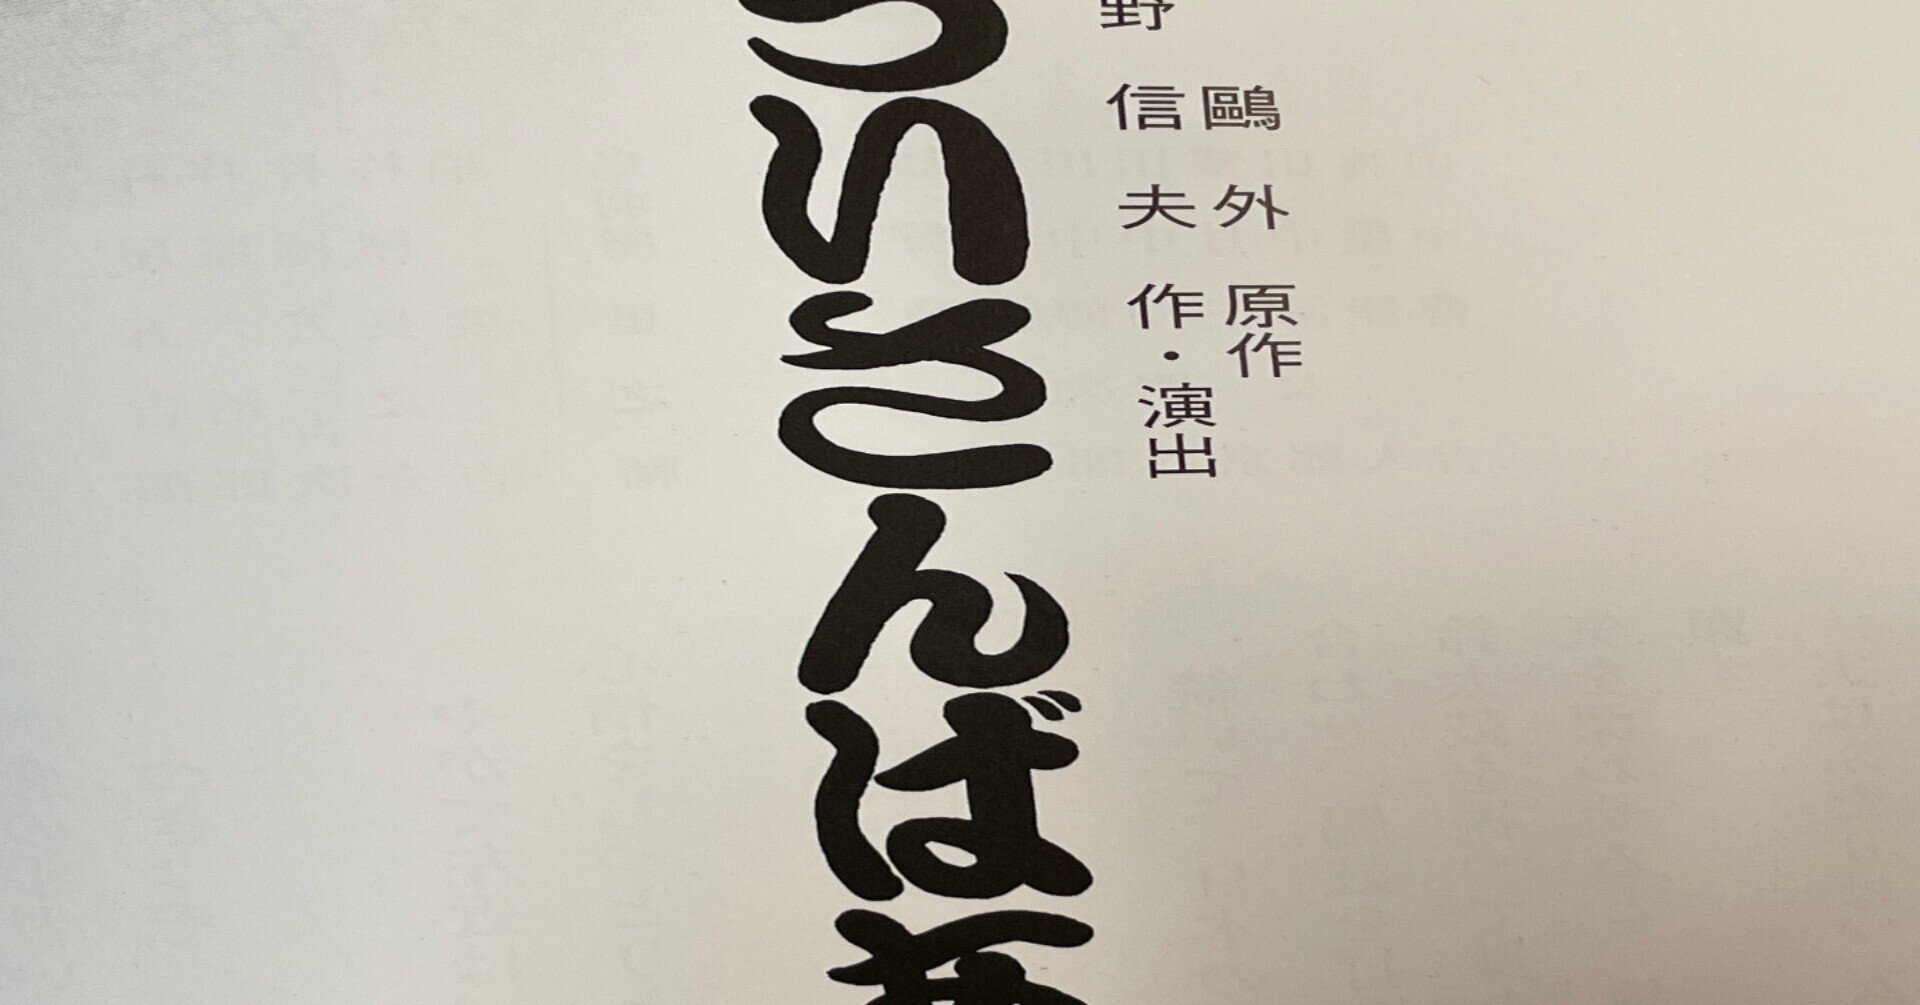 鷗外 原作
野信夫 作・演出
いさんば